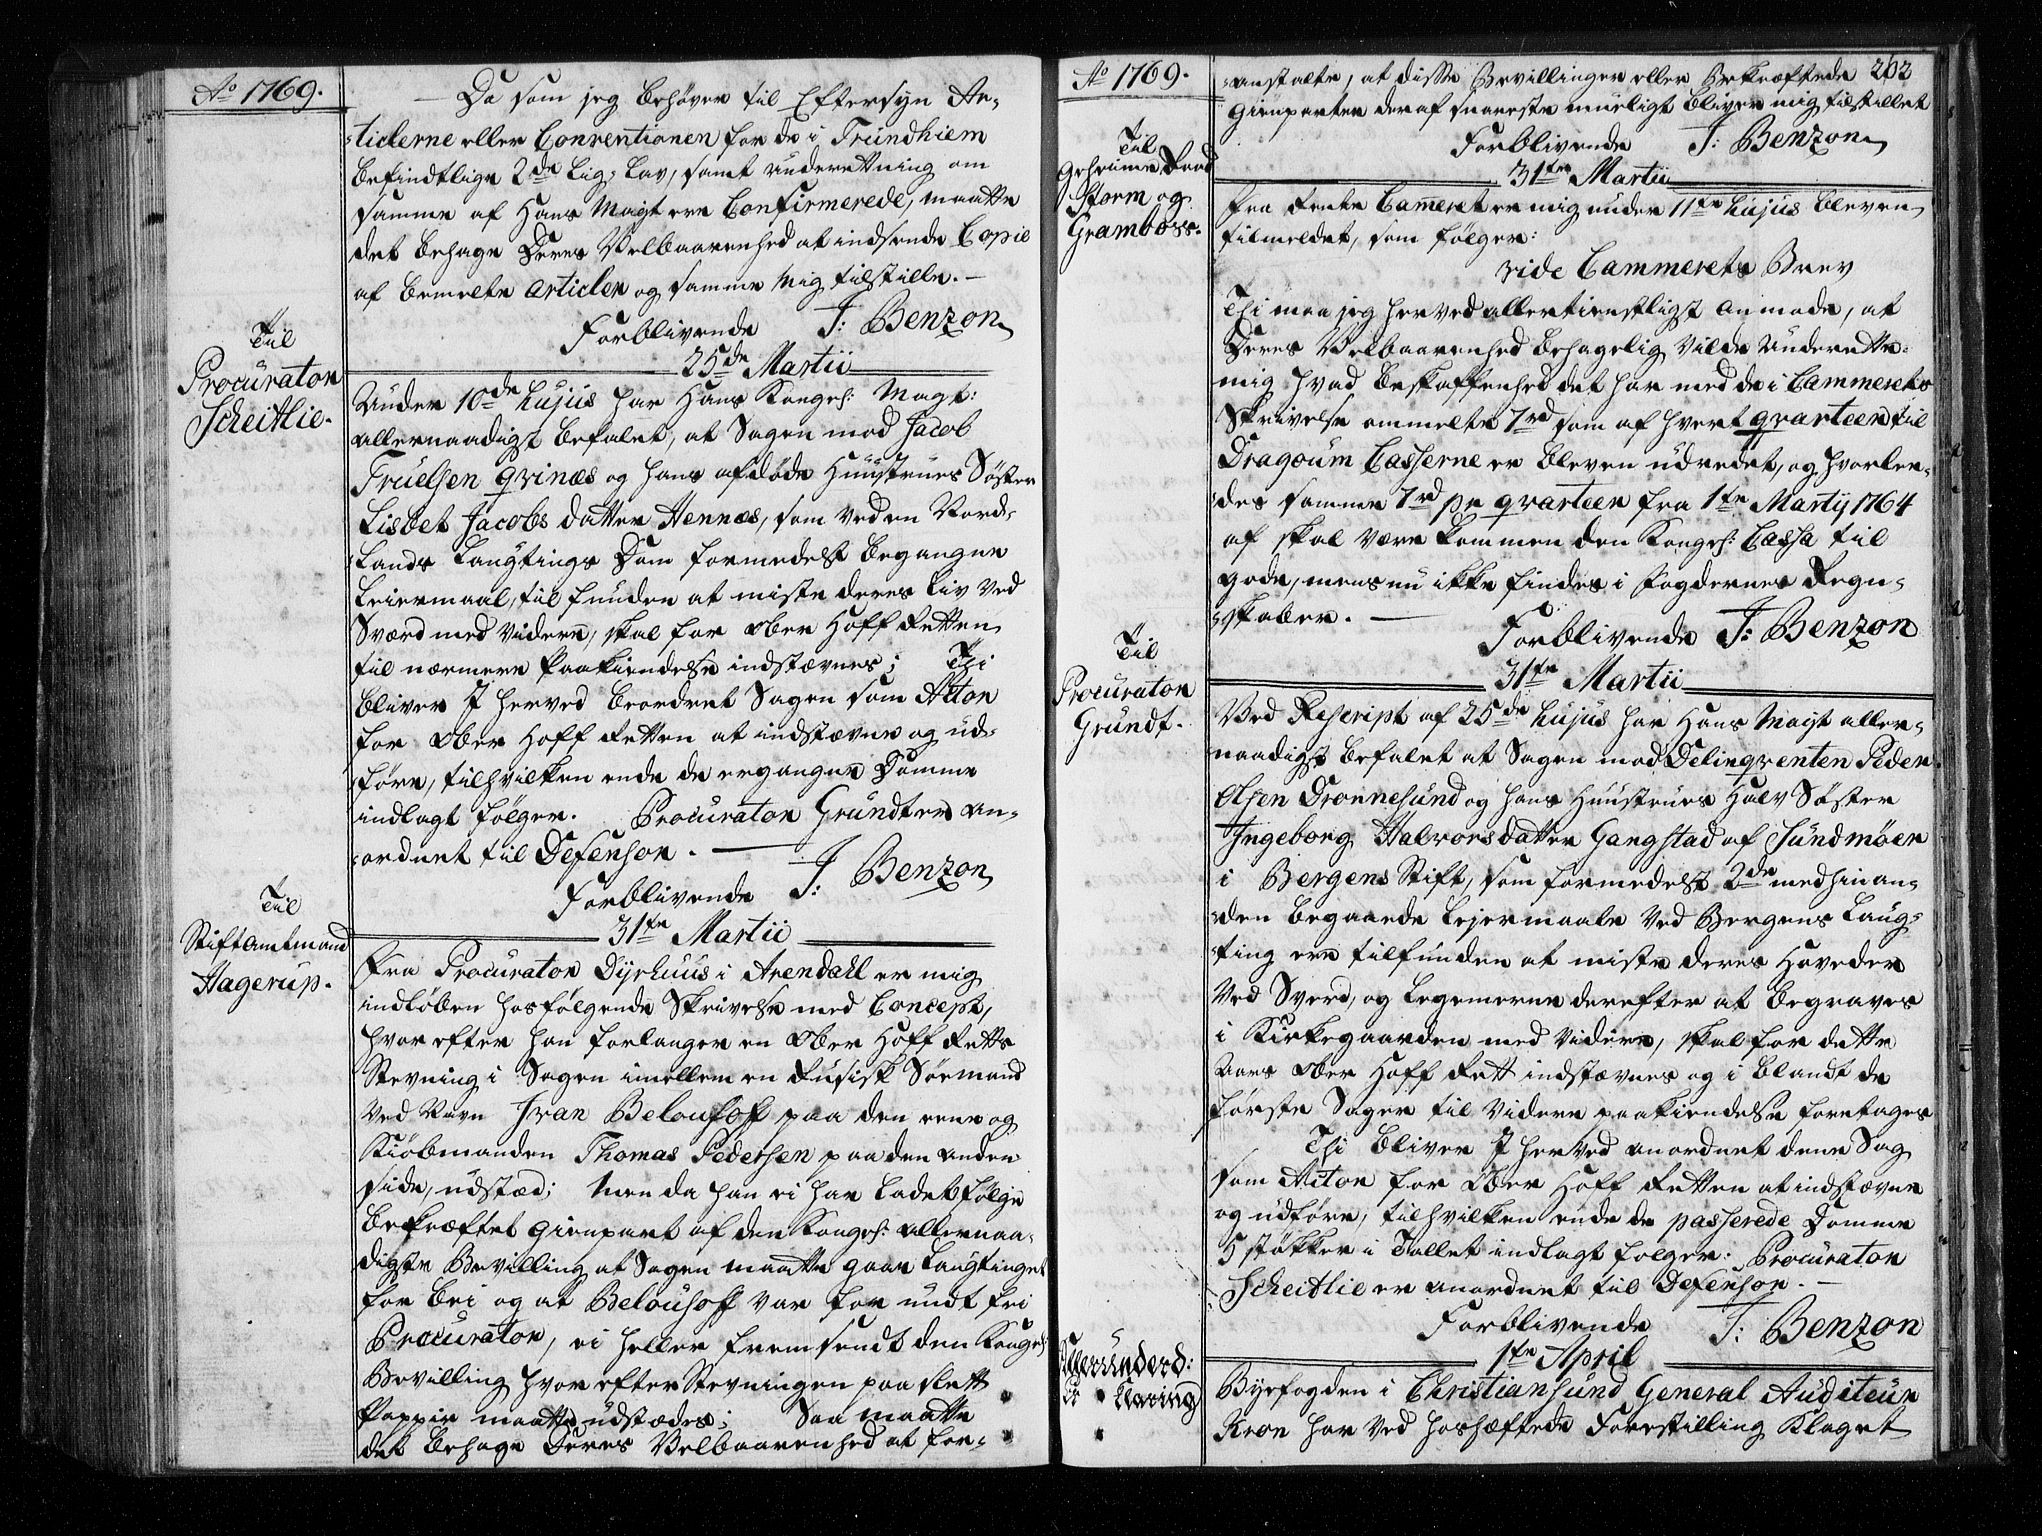 Ao 1769.
Da som jeg behøver til Eftersyn Ar-
ticlerne eller Conventionen for de i Trundhiem
befindtlige 2de Lig-Lav, samt underrettning om
samme af Hans Mayt ere Confirmerede, maatte
det behage Deres Velbaarenhed at indsende Copie
af bemelte Articler og samme mig tilstille. -
Forblivende J: Benzon
25de Martii
Til
Procurator
Scheitlie.
Under 10de hujus har Hans Kongel: Mayt:
allernaadigst befalet, at Sagen mod Jacob
Truelsen qvinæs og hans afdøde Huustrues Søster
Lisbet Jacobs datter Hennæs, som ved en Nord-
Lands Laugtings Dom formedelst begangne
Leiermaal, til funden at miste deres Liv ved
Sværd med videre, skal for Ober Hoff Retten
til nærmere Paakiendelse indstævnes; Thi
bliver I herved beordret Sagen som Actor
for Ober Hoff Retten at indstævne og ud-
føre, til hvilken ende de ergangne Domme
indlagt følger. Procurator Grundt er an-
ordnet til Defensor. -
Forblivende J: Benzon
31te Martii
Til
Stiftamtmand
Hagerup.
Fra Procurator Dyrhuus i Arendahl er mig
indløben hosfølgende Skrivelse med Concept,
hvor efter han forlanger en Ober Hoff Retts
Stevning i Sagen imellem en Rusisk Søemand
ved Navn Ivan Belousoff paa den eene og
Kiøbmanden Thomas Pedersen paa den anden
side, udstæd; Men da han ei har ladet følge
bekræftet Gienpart af den Kongel: allernaa-
digste Bevilling at Sagen maatte gaae Laugtinget
for bei og at Belousoff var for undt fri
Procurator, ei heller fremsendt den Kongel:
Bevilling hvor efter Stevningen paa slett
Pappir maatte udstædes; Saa maatte
det behage Deres Velbaarenhed at for-
Ao 1769.
202
anstalte, at disse Bevillinger eller Bekræftede
Gienparter deraf snareste mueligt bliver mig tilstillet
Forblivende J: Benzon
31te Martii
Til
Geheime Raad
Storm og
Grambow.
Fra Rente Cameret er mig under 11te hujus bleven
tilmeldet, som følger:
vide Cammerets Brev
Thi maa jeg herved allertienstligst anmode, at
Deres Velbaarenhed behagelig vilde underrette
mig hvad beskaffenhed det har med de i Cammerets
Skrivelse ommelte 1rd som af hvert qvarteer til
Dragoun Casserne er bleven udredet, og hvorle-
des samme 1rd pr qvarteer fra 1te Martij 1764
af skal være kommen den Kongel: Cassa til
gode, mens nu ikke findes i Fogdernes Regn-
skaber. -
Forblivende J: Benzon
31te Martii
Til
Procurator
Grundt.
Ved Rescript af 25de hujus har Hans Mayt aller-
naadigst befalet at Sagen mod Delinqventen Peder
Olsen Dronnesund og hans Huustrues Halv Søster
Ingeborg Halvorsdatter Gangstad af Sundmøer
i Bergens Stift, som formedelst 2de med hinan-
den begaaede Lejermaale ved Bergens Laug-
ting ere tilfunden at miste deres Hoveder
ved Sverd, og Legemerne derefter at begraves
i Kirkegaarden med videre, skal for dette
Aars Ober Hoff Rett indstævnes og i blandt de
første Sager til videre paakiendelse foretages
Thi bliver I herved anordnet denne Sag
som Actor for Ober Hoff Retten at indstævne
og udføre, til hvilken ende de passerede Domme
5 støkker i Tallet indlagt følger: Procurator
Scheitlie er anordnet til Defensor. -
Forblivende J: Benzon
1te April
Byefogden i Christiansund General Auditeur
Kron har ved hoshæftede Forestilling klaget